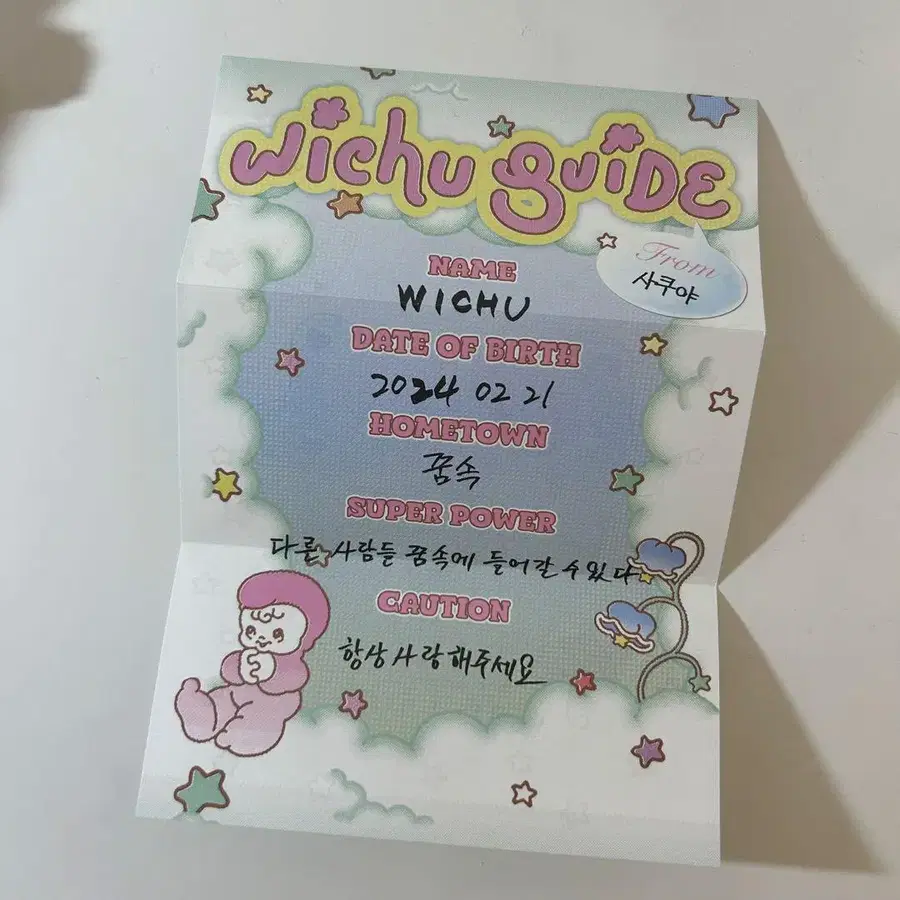 wichu guiDE
From
사쿠야
NAME
WICHU
DATE OF BIRTH
2024 02 21
HOMETOWN
꿈속
SUPER POWER
다른 사람들 꿈속에 들어갈 수 있다
CAUTION
항상 사랑해주세요